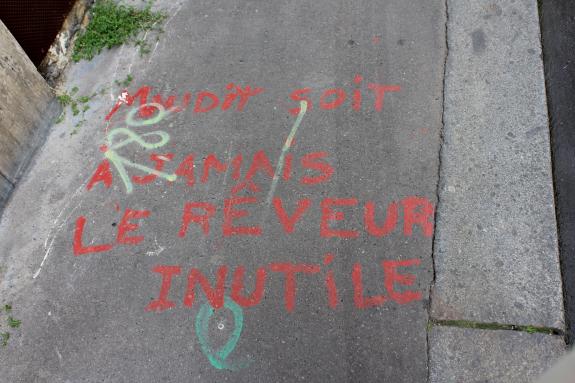 MAUDiT SOiT
À JAMAIS
LE RÊVEUR
INUTiLE